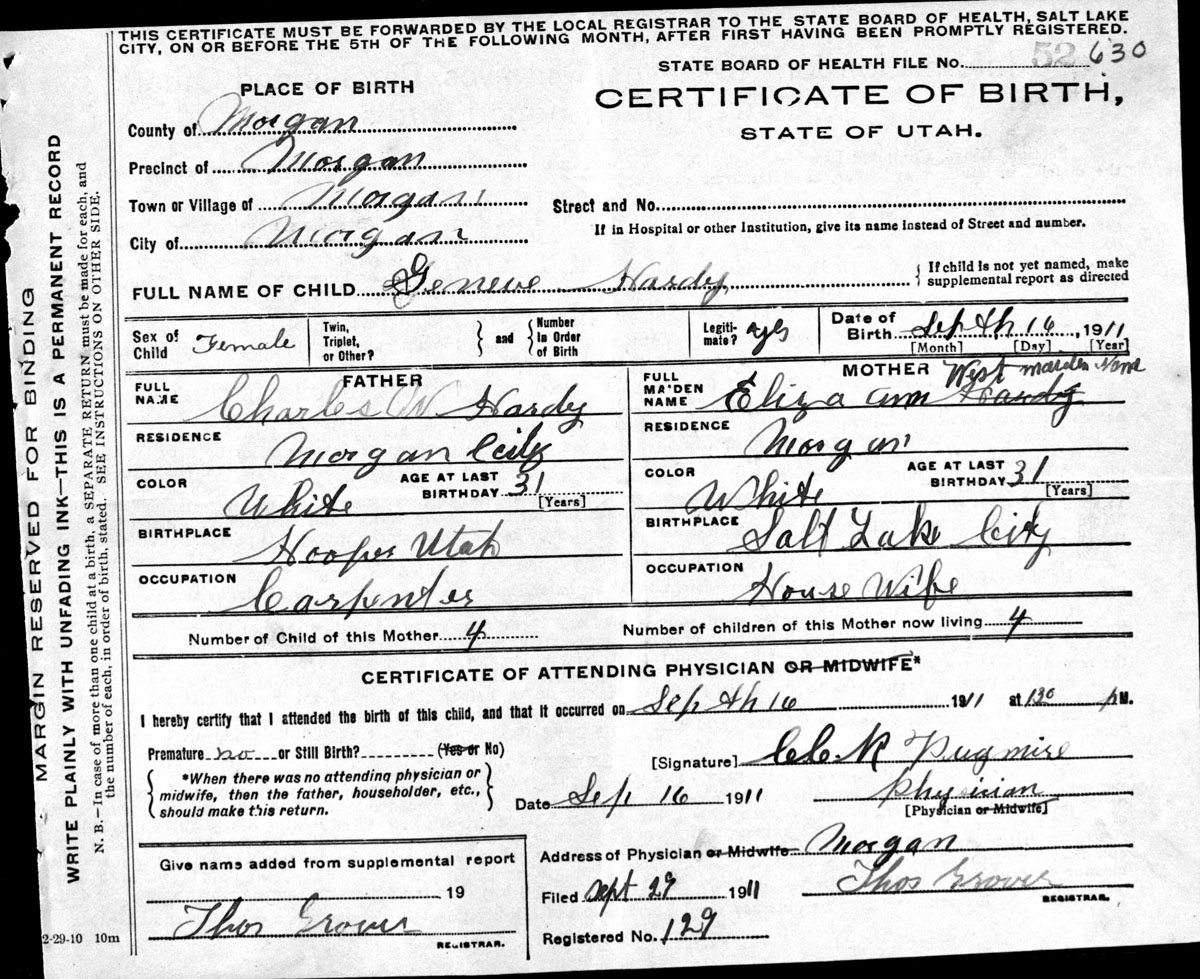 THIS CERTIFICATE MUST BE FORWARDED BY THE LOCAL REGISTRAR TO THE STATE BOARD OF HEALTH, SALT LAKE
CITY, ON OR BEFORE THE 5TH OF THE FOLLOWING MONTH, AFTER FIRST HAVING BEEN PROMPTLY REGISTERED.
STATE BOARD OF HEALTH FILE No. 52 630
PLACE OF BIRTH
CERTIFICATE OF BIRTH,
STATE OF UTAH.
County of Morgan
Precinct of Morgan
Town or Village of Morgan
Street and No.
City of Morgan
If in Hospital or other Institution, give its name instead of Street and number.
FULL NAME OF CHILD Geneve Hardy
{ If child is not yet named, make
supplemental report as directed
Sex of Child Female
Twin, Triplet, or Other?
} and {
Number In Order of Birth
Legiti-mate? yes
Date of Birth Septh 16, 1911
[Month] [Day] [Year]
FATHER
FULL NAME Charles W Hardy
RESIDENCE Morgan City
COLOR White
AGE AT LAST BIRTHDAY 31 [Years]
BIRTHPLACE Hooper Utah
OCCUPATION Carpenter
MOTHER
FULL MAIDEN NAME Eliza Ann Hardy West maiden Name
RESIDENCE Morgan
COLOR White
AGE AT LAST BIRTHDAY 31 [Years]
BIRTHPLACE Salt Lake City
OCCUPATION House Wife
Number of Child of this Mother 4
Number of children of this Mother now living 4
CERTIFICATE OF ATTENDING PHYSICIAN OR MIDWIFE*
I hereby certify that I attended the birth of this child, and that it occurred on Septh 16 1911 at 130 pM.
Premature no or Still Birth? (Yes or No)
{ *When there was no attending physician or
midwife, then the father, householder, etc.,
should make this return. }
[Signature] Pugmire
Date Sep 16 1911
Physician
[Physician or Midwife]
Give name added from supplemental report
19
Thos Grover
REGISTRAR.
Address of Physician or Midwife Morgan
Filed Sept 29 1911
Thos Grover
REGISTRAR.
Registered No. 129
2-29-10 10m
MARGIN RESERVED FOR BINDING
WRITE PLAINLY WITH UNFADING INK—THIS IS A PERMANENT RECORD
N. B.—In case of more than one child at a birth, a SEPARATE RETURN must be made for each, and
the number of each, in order of birth, stated. SEE INSTRUCTIONS ON OTHER SIDE.